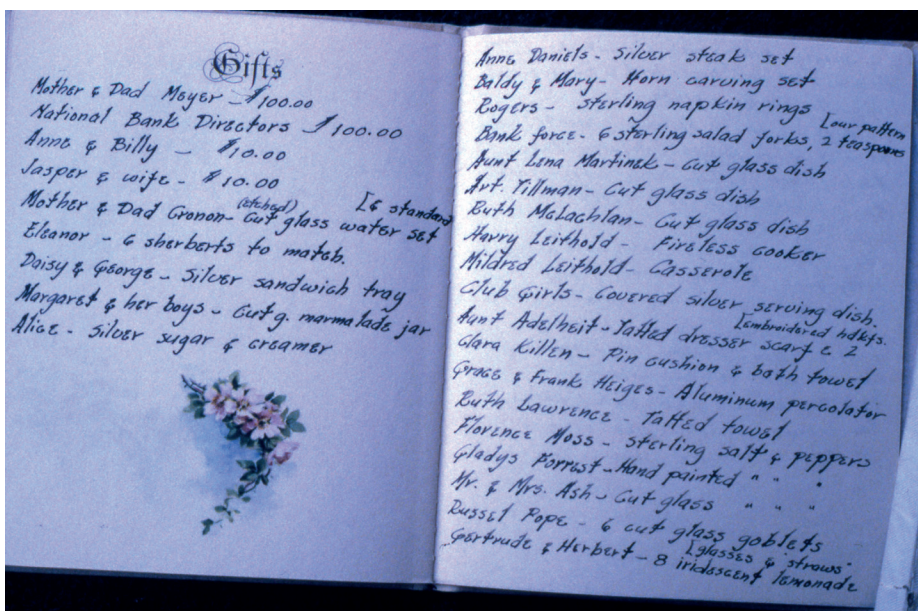 Gifts
Mother & Dad Meyer - $100.00
National Bank Directors $100.00
Anne & Billy - $10.00
Jasper & wife - $10.00
[6 standard
(etched)
Mother & Dad Cronon - Cut glass water set
Eleanor - 6 sherberts to match.
Daisy & George - Silver sandwich tray
Margaret & her boys - Cut g. marmalade jar
Alice - Silver sugar & creamer
Anne Daniels - Silver steak set
Baldy & Mary - Horn carving set
Rogers - Sterling napkin rings
[our pattern
Bank force - 6 sterling salad forks, 2 teaspoons
Aunt Lena Martinek - Cut glass dish
Art. Tillman - Cut glass dish
Ruth McLachlan - Cut glass dish
Harry Leithold - Fireless cooker
Mildred Leithold - Casserole
Club Girls - Covered silver serving dish.
[embroidered hdkfs.
Aunt Adelheit - Tatted dresser scarf & 2
Clara Killen - Pin cushion & bath towel
Grace & Frank Heiges - Aluminum percolator
Ruth Lawrence - Tatted towel
Florence Moss - Sterling salt & peppers
Gladys Forrest - Hand painted " " "
Mr. & Mrs. Ash - Cut glass " " "
Russel Pope - 6 cut glass goblets
[glasses & "straws"
Gertrude & Herbert - 8 iridescent lemonade